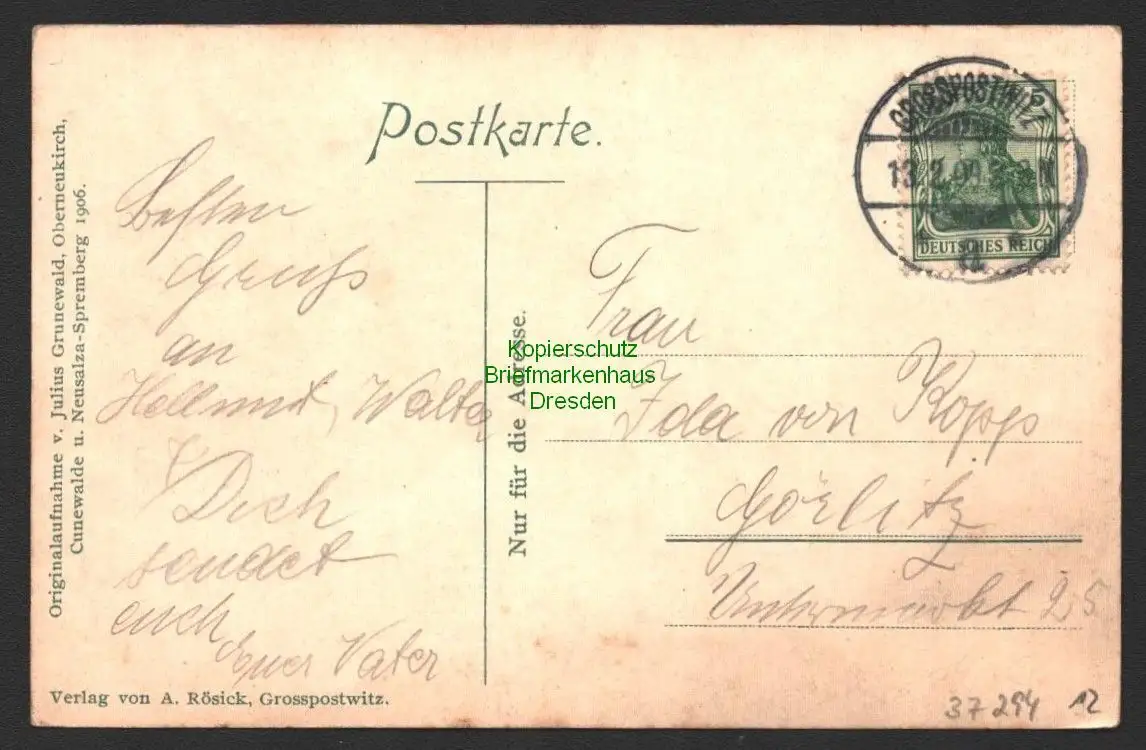 Originalaufnahme v. Julius Grunewald, Oberneukirch,
Cunewalde u. Neusalza-Spremberg 1906.
Postkarte.
Besten
Gruß
an
Hellmut, Walter
Dich
sendet
euch
Euer Vater
Verlag von A. Rösick, Grosspostwitz.
Nur für die Adresse.
GROSSPOSTWITZ
5
DEUTSCHES REICH
Frau
Ida von Kopp
Görlitz
Untermarkt 25
Kopierschutz
Briefmarkenhaus
Dresden
37294 12